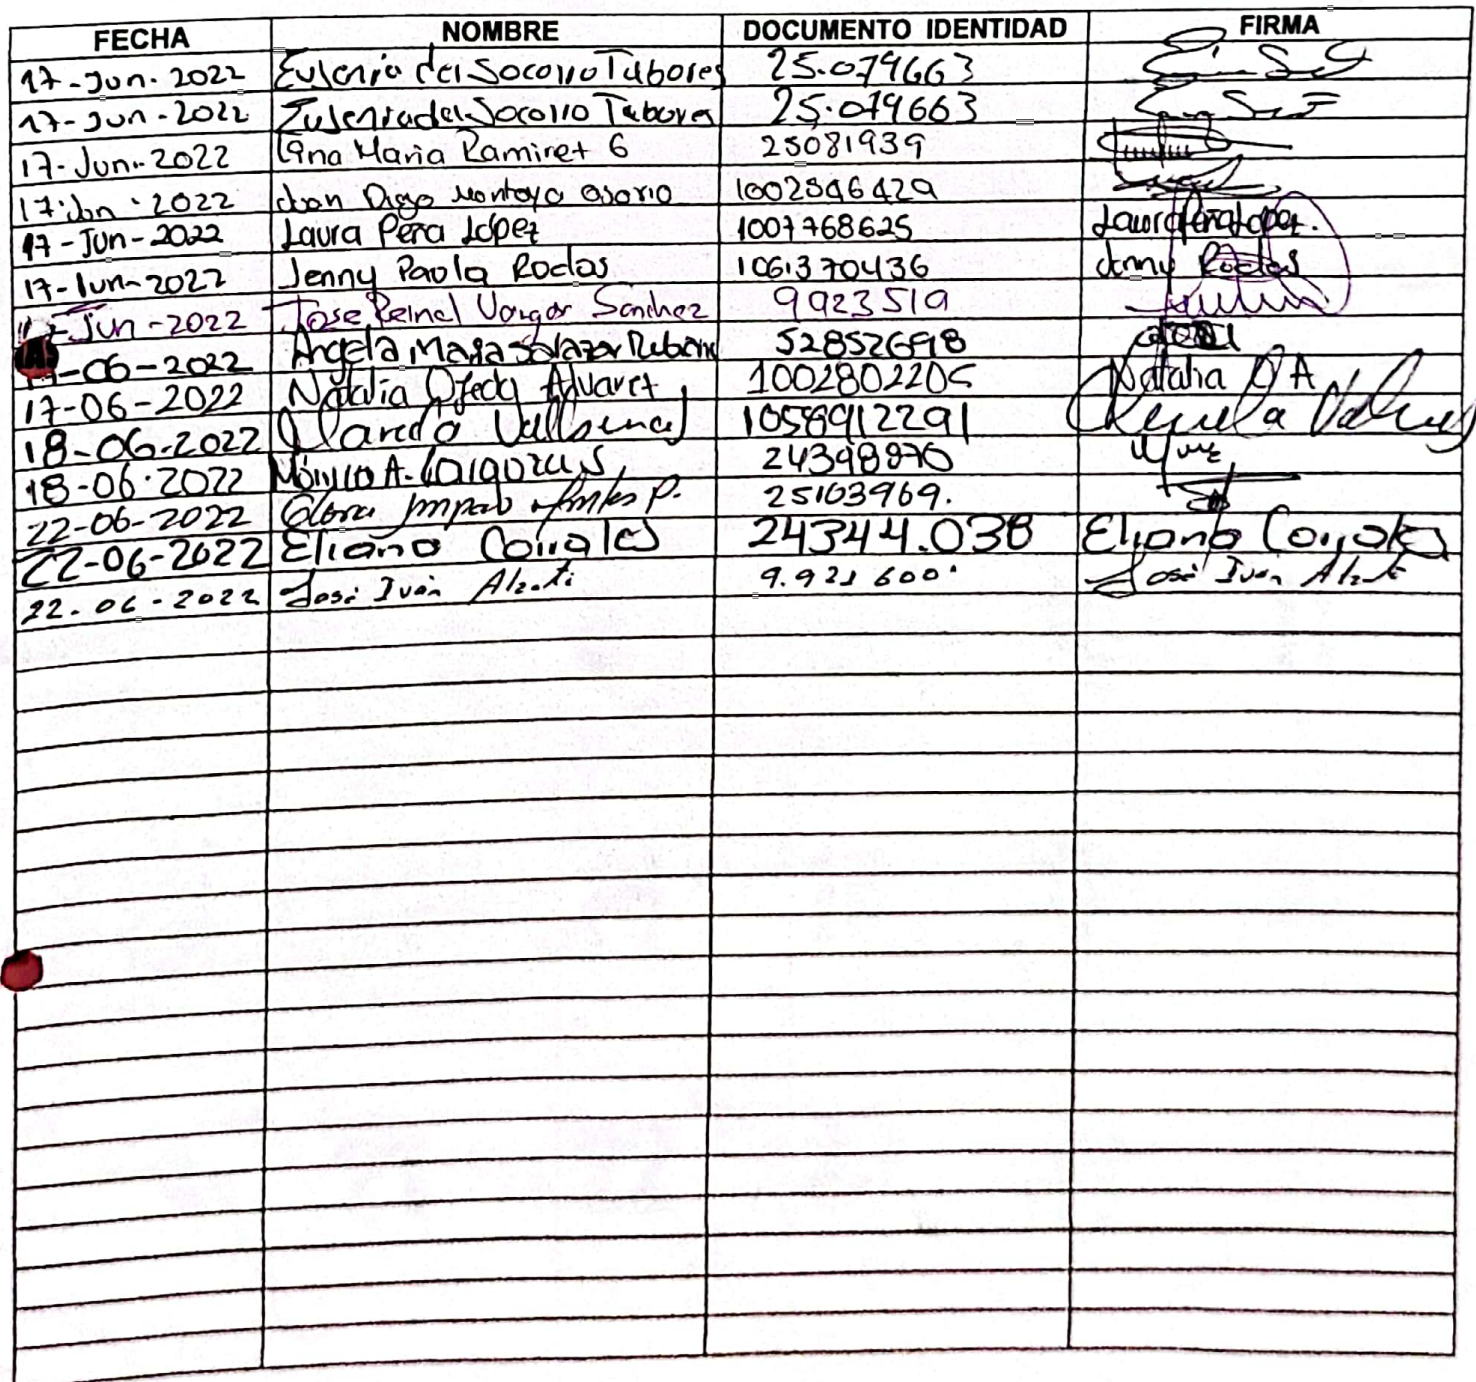 FECHA NOMBRE DOCUMENTO IDENTIDAD FIRMA
17-Jun-2022 Eugenia del Socorro Tabores 25.079663
17-Jun-2022 Eugenia del Socorro Tabores 25.079663
17-Jun-2022 Lina Maria Ramirez G 25081939
17-Jun-2022 Juan Diego Montoya Osorio 1002546429
17-Jun-2022 Laura Pera López 1007768625 Laura Pera Lopez.
17-Jun-2022 Jenny Paola Rodas 1061370436 Jenny Rodas
Jun-2022 Jose Reinel Vargas Sanchez 9923519
17-06-2022 Angela Maria Salazar 52852698
17-06-2022 Natalia Ojeda Alvarez 1002802205 Natalia O A
18-06-2022 1058912291
18-06-2022 Mónica A. 24398970
22-06-2022 Gloria P. 25103969.
22-06-2022 Eliana Corrales 24344.038 Eliana Corrales
22-06-2022 José Iván Alzate 9.921 600 José Iván Alzate